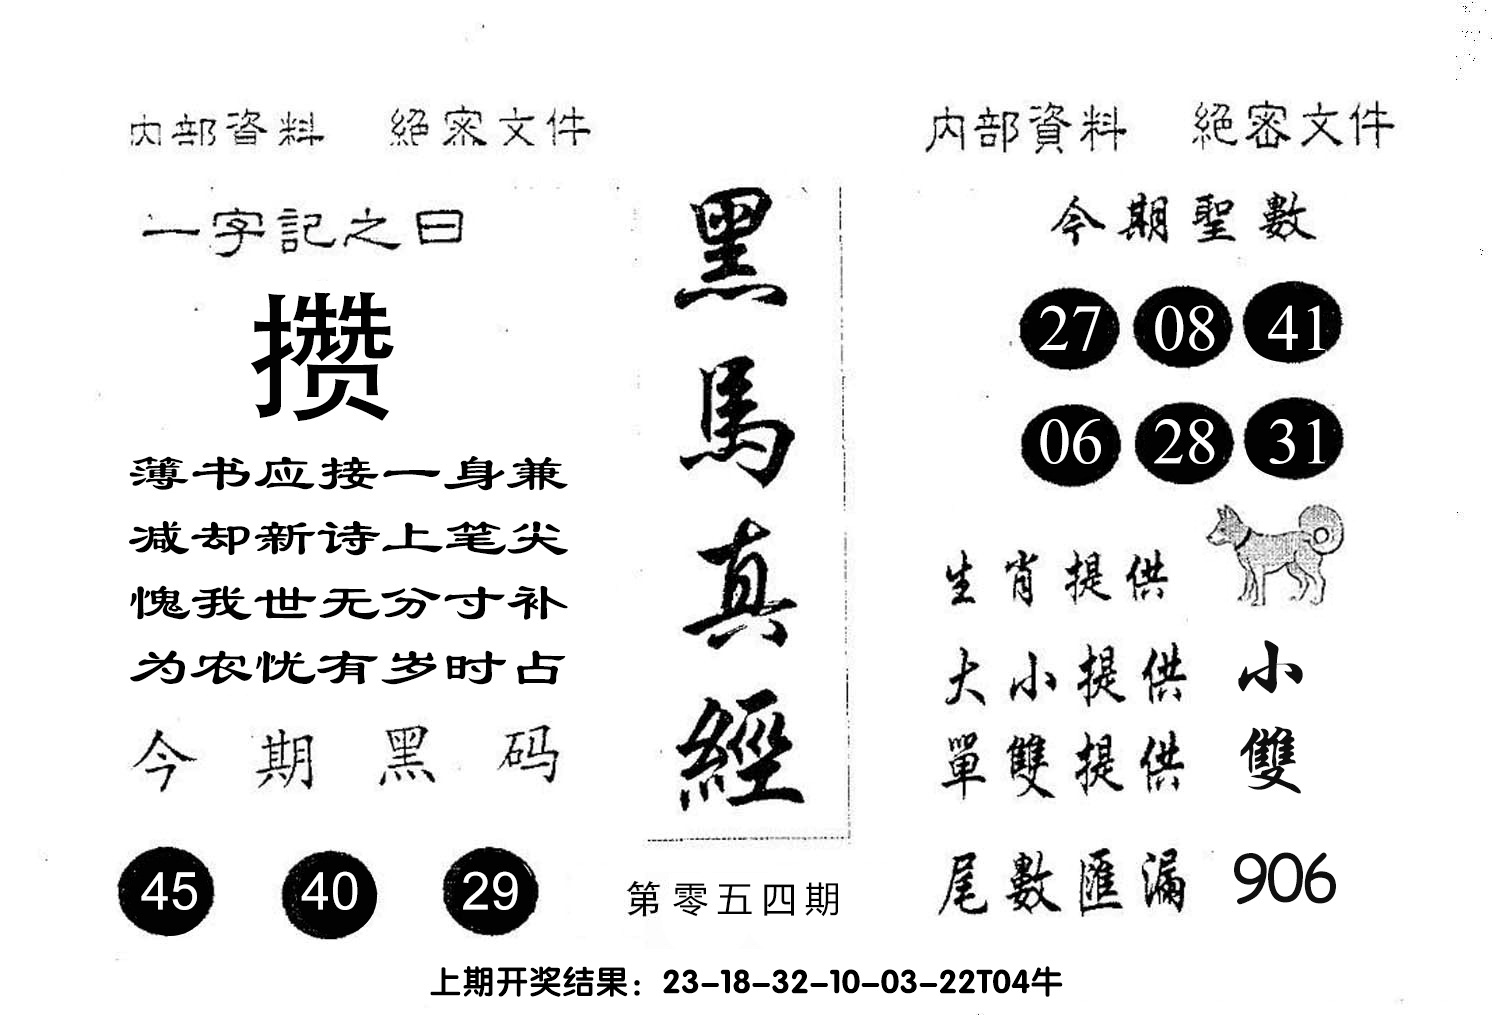 内部資料 絕密文件
一字記之曰
攒
薄书应接一身兼
减却新诗上笔尖
愧我世无分寸补
为农忧有岁时占
今期黑码
45 40 29
黑馬真經
第零五四期
内部資料 絕密文件
今期聖數
27 08 41
06 28 31
生肖提供
大小提供 小
單雙提供 雙
尾數匯漏 906
上期开奖结果：23-18-32-10-03-22T04牛